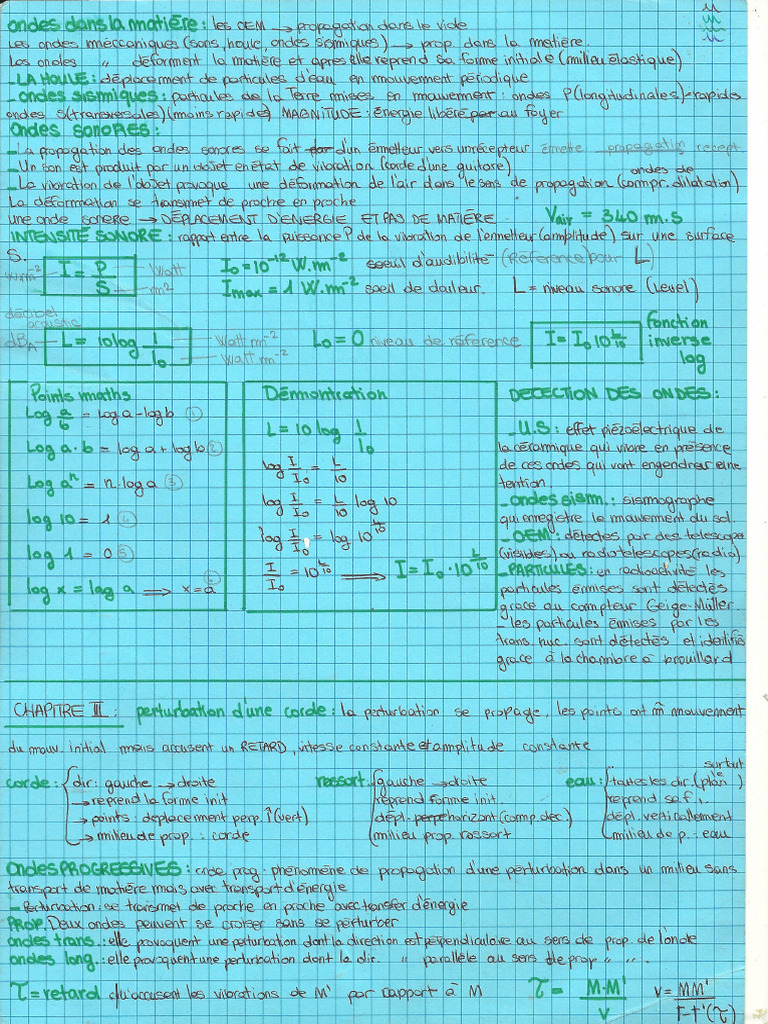 ondes dans la matière : les OEM → propagation dans le vide
Les ondes mécaniques (sons, houle, ondes sismiques) → prop. dans la matière.
Les ondes " déforment la matière et après elle reprend sa forme initiale (milieu élastique)
_ LA HOULE : déplacement de particules d'eau en mouvement périodique
_ ondes sismiques : particules de la Terre mises en mouvement : ondes P(longitudinales)+rapides
ondes S(transversales)(moins rapides) MAGNITUDE : énergie libéré par au foyer
Ondes SONORES :
_ La propagation des ondes sonores se fait par d'un émetteur vers un récepteur émette propagation récept
_ Un son est produit par un objet en état de vibration (corde d'une guitare)
_ La vibration de l'objet provoque une déformation de l'air dans le sens de propagation (ondes de compr. dilatation)
La déformation se transmet de proche en proche
une onde sonore → DÉPLACEMENT D'ENERGIE ET PAS DE MATIÈRE Vair = 340 m.s
INTENSITÉ SONORE : rapport entre la puissance P de la vibration de l'emetteur (amplitude) sur une surface
S.
W.m⁻² I = P/S Watt m2
I₀ = 10⁻¹² W.m⁻² soeuil d'audibilité (Référence pour L)
Imax = 1 W.m⁻² soeil de douleur. L = niveau sonore (Level)
décibel acoustic
dBA L = 10 log I/I₀ Watt m⁻² Watt m⁻² L₀ = 0 niveau de référence I = I₀ 10^L/10 fonction inverse log
Points maths
Log a/b = log a - log b ①
Log a·b = log a + log b ②
Log aⁿ = n·log a ③
log 10 = 1 ④
log 1 = 0 ⑤
log x = log a ⟹ x = a ⑥
Démontration
L = 10 log I/I₀
log I/I₀ = L/10
log I/I₀ = L/10 log 10
log I/I₀ = log 10^L/10
I/I₀ = 10^L/10 ⟹ I = I₀ · 10^L/10
DECECTION DES ONDES :
_ U.S : effet piézoélectrique de
la céramique qui vibre en présence
de ces ondes qui vont engendrer une
tention.
_ ondes sism. : sismographe
qui enregistre le mouvement du sol.
_ OEM : détectes par des telescope
(visibles) ou radiotelescopes(radio)
_ PARTICULES : en radioactivité les
particules émises sont détectés
grace au compteur Geige-Müller.
_ les particules émises par les
trans. nuc. sont détectés et identifié
grace à la chambre à brouillard
CHAPITRE II : perturbation d'une corde : la perturbation se propage, les points ont m̂ mouvement
du mouv. initial mais accusent un RETARD, vitesse constante et amplitude constante
corde : dir : gauche → droite
→ reprend la forme init
→ points : déplacement perp. ↑(vert)
→ milieu de prop. : corde
ressort : gauche → droite
reprend forme init.
dépl. perpe horizont (comp. dec)
milieu prop. ressort
eau : toutes les dir. (plan surtout)
reprend sa f i.
dépl. verticallement
milieu de p. : eau
Ondes PROGRESSIVES : onde prog : phénomène de propagation d'une perturbation dans un milieu sans
transport de matière mais avec transport d'énergie
_ Perturbation : se transmet de proche en proche avec transfer d'énergie
PROP. Deux ondes peuvent se croiser sans se perturber
ondes trans. : elle provoquent une perturbation dont la direction est perpendiculaire au sens de prop. de l'onde
ondes long. : elle provoquent une perturbation dont la dir. " parallèle au sens de prop " " .
τ = retard qu'accusent les vibrations de M' par rapport à M τ = M·M'/V v = MM'/t-t'(τ)